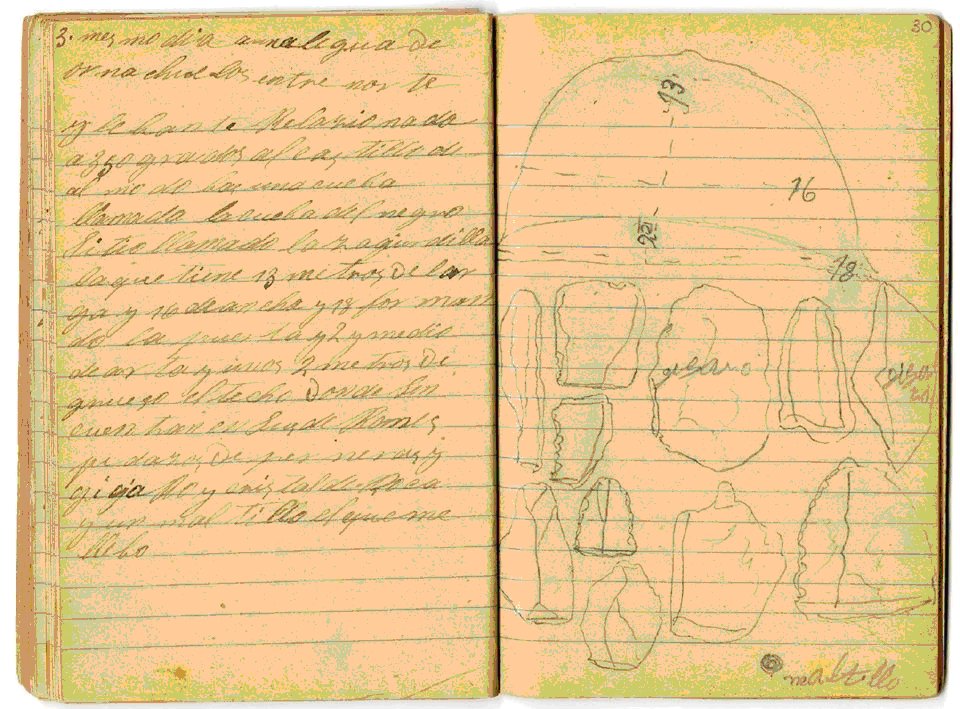 3. mes mo dia a una legua de
ornachuelos entre norte
y lebante Relasionado
a 350 grados al castillo de
al mo do bar una cueba
llamada la cueba del negro
Sitio llamado la zagurdilla
la que tiene 13 metros de lar
ga y 16 de ancha y 18 por
do la puerta y 2 y medio
de arta y unos 2 metros de
grueso el techo donde Sen
cuentran
pedazos de per ner as y
gi ja Ro y cristal de Roca
y un mal tillo el que me
llebo
30
13
16
20
18
gigaro
maltillo